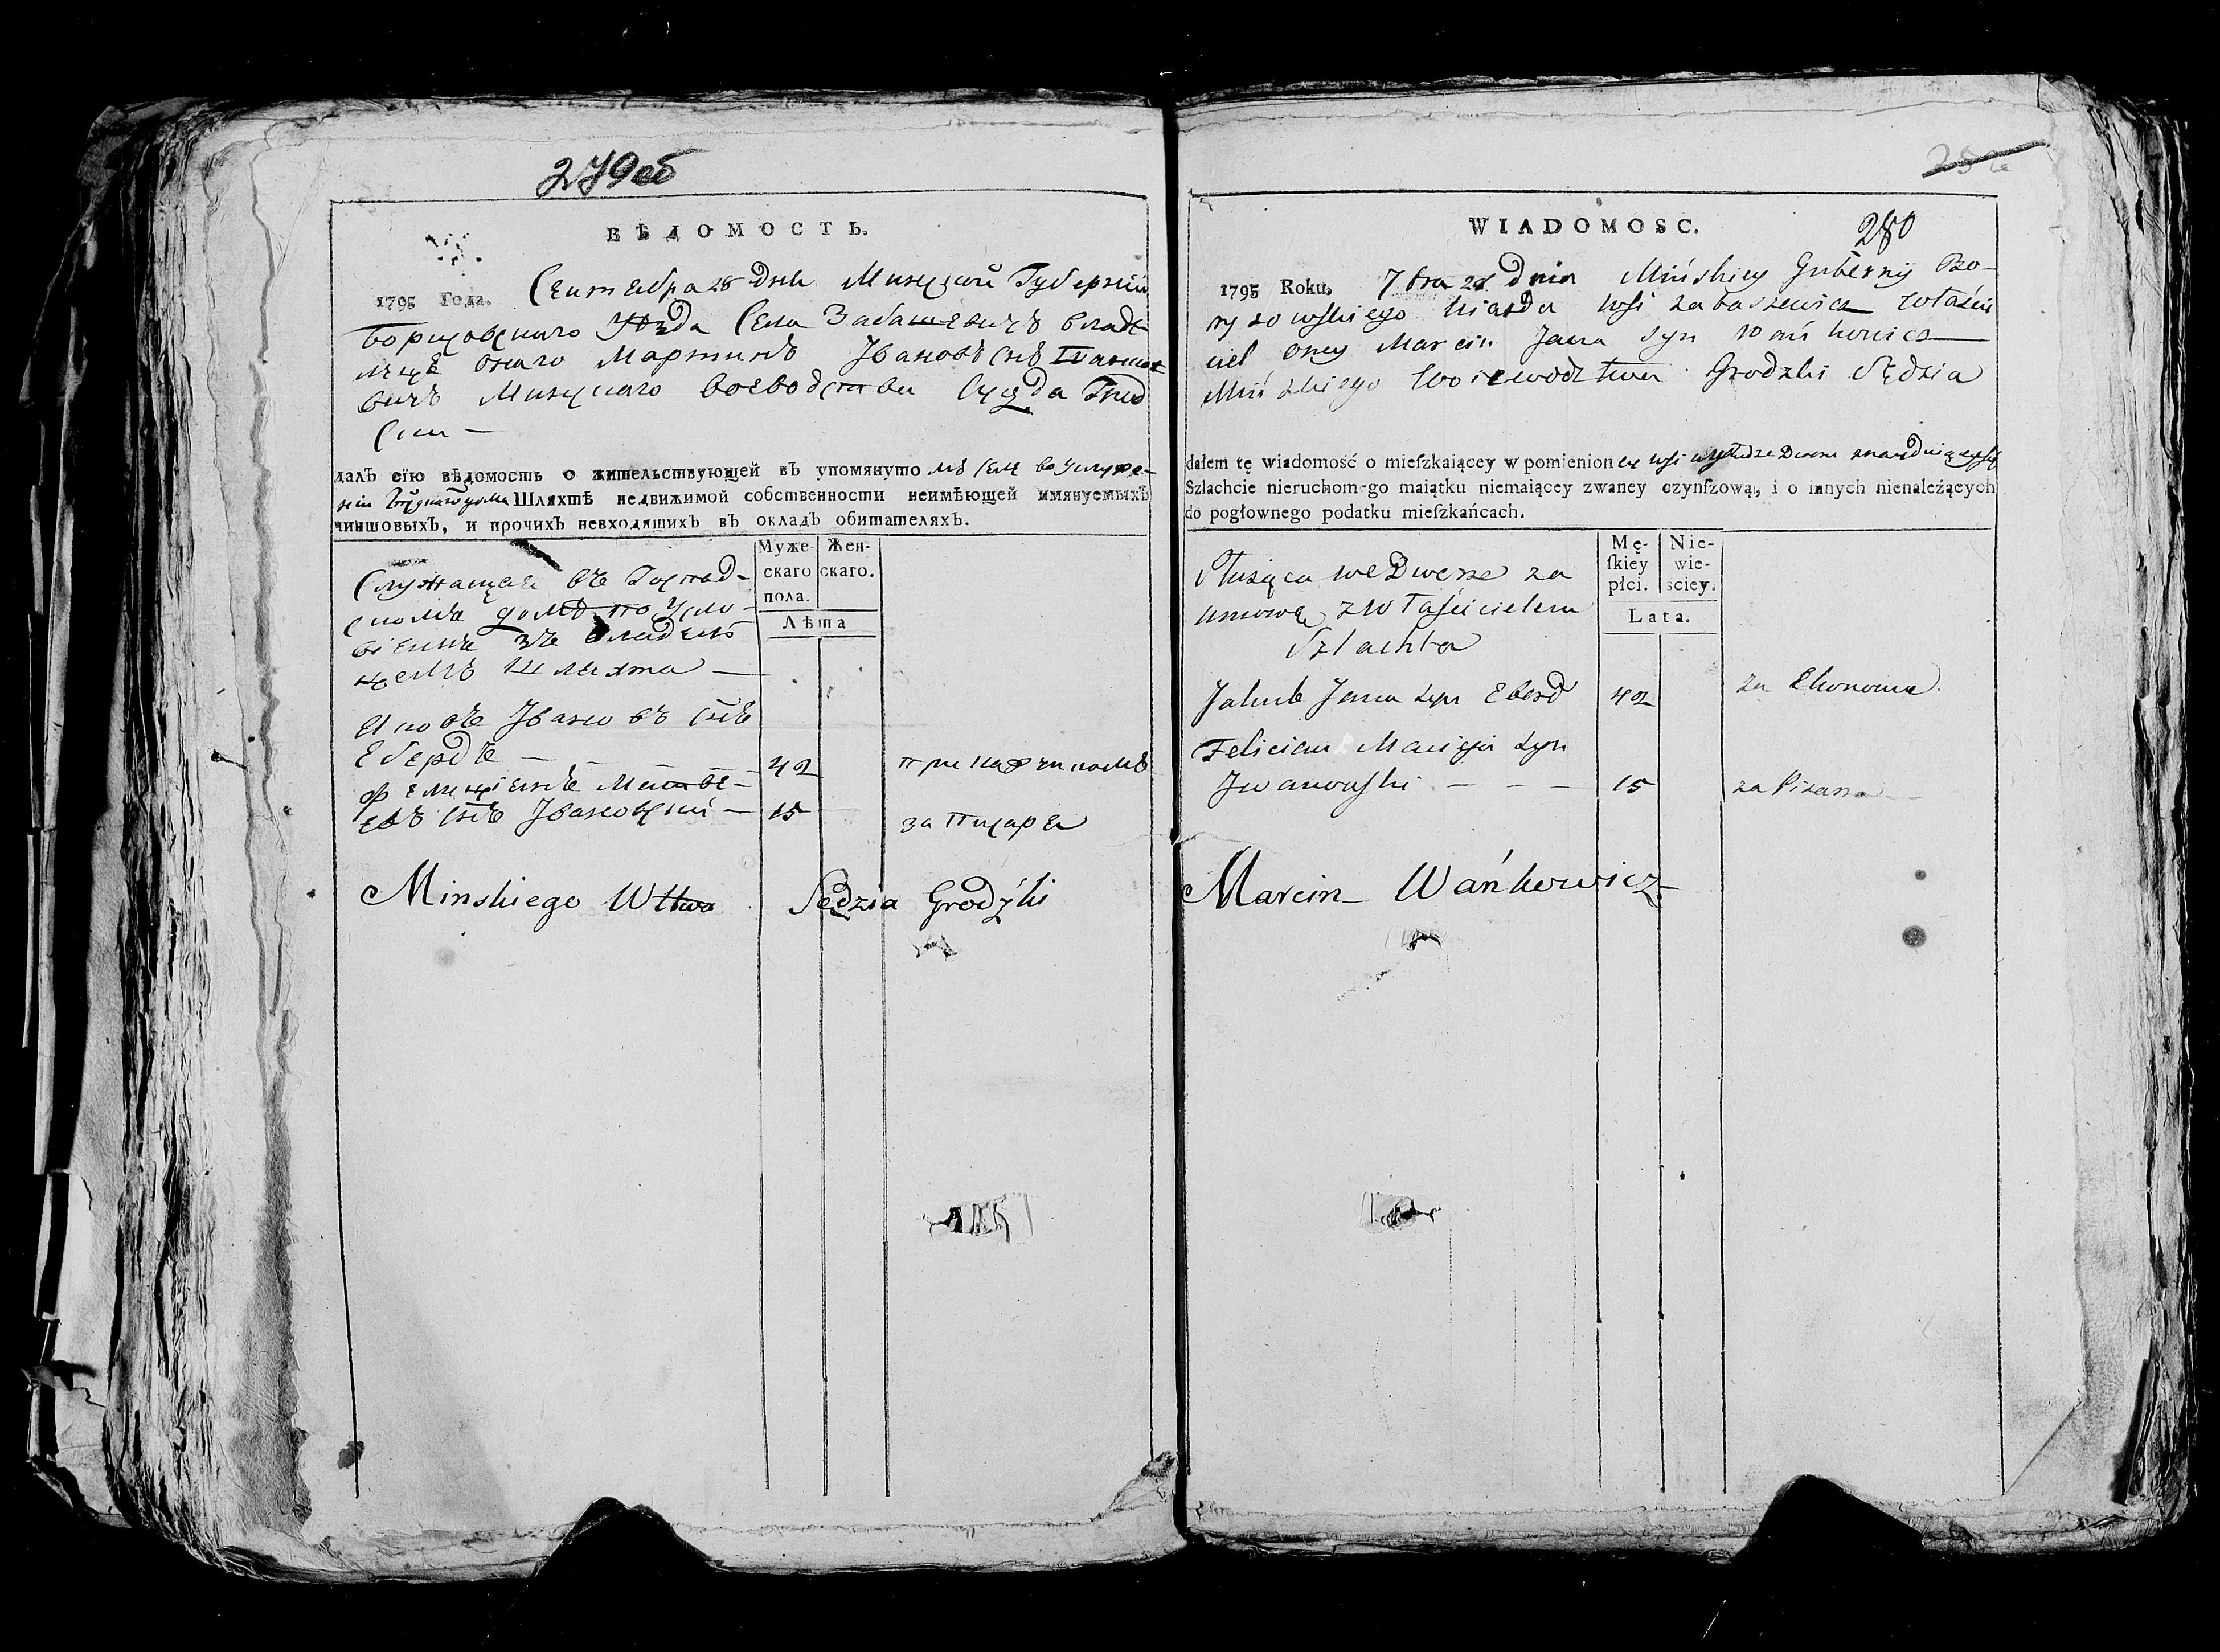 279об
ВѢДОМОСТЬ.
1795 Года. Сентебра 28 дня Минской Губернїи
Борисовскаго Уезда Села Забашевичъ владе
лецъ онаго Мартинъ Ивановъ снъ Ванко
вичъ Минскаго воеводства Суда Грод
ски —
далъ сїю вѣдомость о жительствующей въ упомянуто мъ селе во услуже-
нїи Шляхтѣ недвижимой собственности неимѣющей имянуемыхъ
чиншовыхъ, и прочихъ невходящихъ въ окладъ обитателяхъ.
Муже- Жен-
скаго скаго.
пола.
Лѣта
Служащая въ Господ-
скомъ доме по Усло-
вїямъ зъ владель
цемъ Шляхта —
Яковъ Ивановъ снъ
Ебердъ — — — 42
Фелицїянъ Матве-
евъ снъ Ивановскїй — 15 за писаря
Minskiego Wttwa Sędzia Grodzki
WIADOMOSC.
280
1795 Roku. 7bra 28 Dnia Mińskiey Guberny Bo-
rysowskiego Uiazda wsi Zabaszewicz właści
ciel oney Marcin Jana syn Wańkowicz
Mińskiego Woiewodztwa Grodzki Sędzia
dałem tę wiadomość o mieſzkaiącey w pomienion ey wsi
Szlachcie nieruchom-go maiątku niemaiącey zwaney czynſzową, i o innych nienależących
do pogłownego podatku mieſzkańcach.
Mę- Nie-
ſkiey wie-
płci. ściey.
Lata.
Służąca we Dworze za
umową z Właścicielem
Szlachta
Jakub Jana syn Eberd 42 za Ekonoma
Felician Macieja syn
Iwanowski — — — 15 za Pisarza
Marcin Wańkowicz